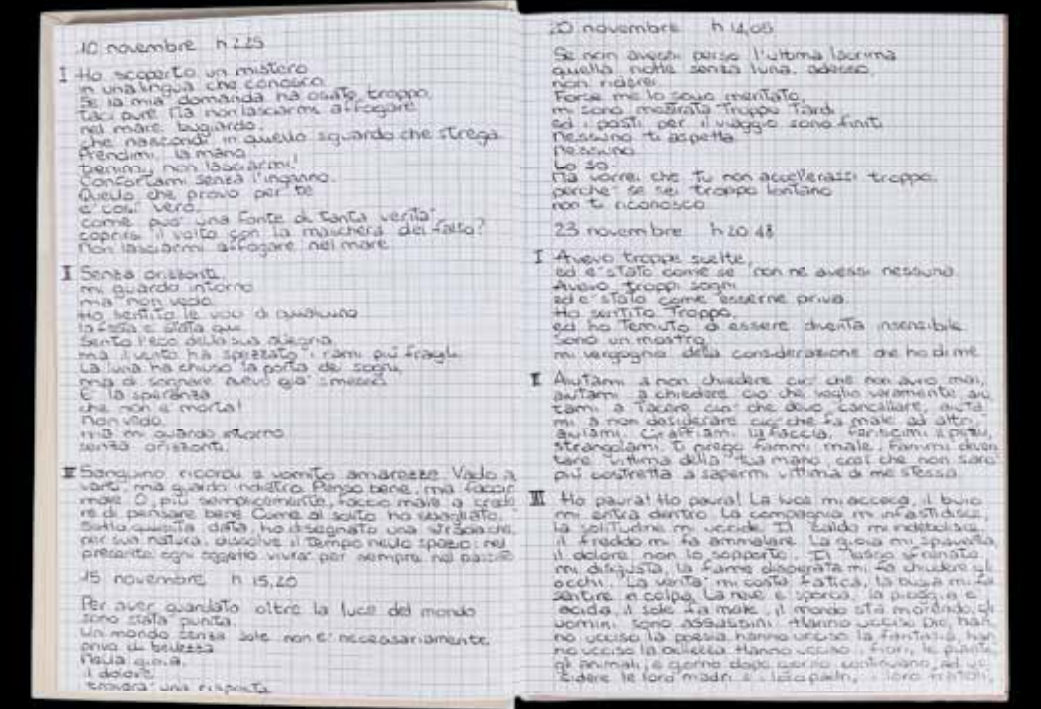 10 novembre h 2.25
I Ho scoperto un mistero
in una lingua che conosco.
Se la mia domanda ha osato troppo,
taci pure ma non lasciarmi affogare
nel mare bugiardo,
che nascondi in quello sguardo che strega
Prendimi la mano
tienimi, non lasciarmi!
Confortami senza l'inganno.
Quello che provo per te
e' cosi' vero.
come puo' una fonte di tanta verita'
coprirsi il volto con la maschera del falso?
Non lasciarmi affogare nel mare
II Senza orizzonti,
mi guardo intorno
ma non vedo.
Ho sentito le voci di qualcuno
la festa e' stata qui
Sento l'eco della sua allegria,
ma il vento ha spezzato i rami piu' fragili
La luna ha chiuso la porta dei sogni,
ma di sognare avevo gia' smesso
E' la speranza
che non e' morta!
Non vedo.
ma mi guardo intorno
senza orizzonti.
III Sanguino ricordi e vomito amarezze. Vado a
vanti ma guardo indietro. Penso bene, ma faccio
male. O, piu' semplicemente, faccio male a crede
re di pensare bene. Come al solito ho sbagliato.
Sotto questa data, ho disegnato una che,
per sua natura, dissolve il tempo nello spazio: nel
presente ogni oggetto vivra' per sempre nel passato
15 novembre h 15,20
Per aver guardato oltre la luce del mondo
sono stata punita.
Un mondo senza sole non e' necessariamente
privo di bellezza
Nella gioia,
il dolore
trovera' una risposta
20 novembre h 14,05
Se non avessi perso l'ultima lacrima
quella notte senza luna, adesso,
non riderei
Forse me lo sono meritato,
mi sono mostrata Troppo Tardi
ed i posti per il viaggio sono finiti
Nessuno ti aspetta
Nessuno
Lo so.
Ma vorrei che tu non accellerassi troppo,
perche' se sei troppo lontano
non ti riconosco
23 novembre h 20.48
I Avevo troppe scelte,
ed e' stato come se non ne avessi nessuna.
Avevo troppi sogni
ed e' stato come esserne priva.
Ho sentito Troppo,
ed ho Temuto di essere diventa insensibile.
Sono un mostro,
mi vergogno della considerazione che ho di me
II Aiutami a non chiedere cio' che non avro' mai,
aiutami a chiedere cio' che voglio veramente aiu
tami a Tacere cio' che devo cancellare, aiuta
mi a non desiderare cio' che fa male ad altri
aiutami. Graffiami la faccia, feriscimi il petto,
strangolami, ti prego fammi male. Fammi diven
tare vittima della tua mano, cosi' che non saro'
piu' costretta a sapermi vittima di me stessa.
III Ho paura! Ho paura! La luce mi acceca, il buio
mi entra dentro. La compagnia mi infastidisce,
la solitudine mi uccide. Il caldo mi indebolisce,
il freddo mi fa ammalare. La gioia mi spaventa,
il dolore non lo sopporto. Il lusso sfrenato
mi disgusta, la fame disperata mi fa chiudere gli
occhi. La verita' mi costa fatica, la bugia mi fa
sentire in colpa. La neve e' sporca, la pioggia e'
acida, il sole fa male, il mondo sta morendo, gli
uomini sono assassini. Hanno ucciso Dio, han
no ucciso la poesia hanno ucciso la fantasia, han
no ucciso la bellezza. Hanno ucciso i fiori, le piante,
gli animali, e giorno dopo giorno continuano ad uc
cidere le loro madri e i loro padri, i loro fratelli,